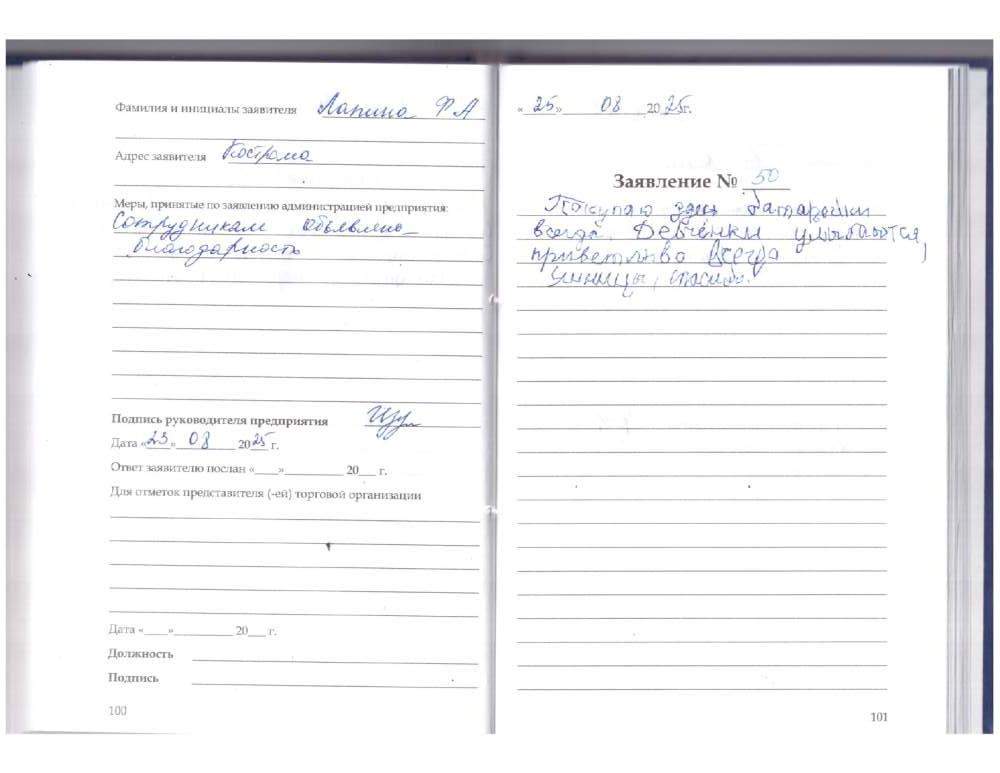 Фамилия и инициалы заявителя Лапина Ф А
Адрес заявителя Кострома
Меры, принятые по заявлению администрацией предприятия:
Сотрудникам объявлена
благодарность
Подпись руководителя предприятия
Дата «23» 08 2025 г.
Ответ заявителю послан «____»__________ 20___ г.
Для отметок представителя (-ей) торговой организации
Дата «____»__________ 20___ г.
Должность
Подпись
100
«23» 08 2025г.
Заявление № 50
Покупаю здесь батарейки
всегда. Девчёнки улыбаются,
приветливо всегда
Умницы, спасибо.
101